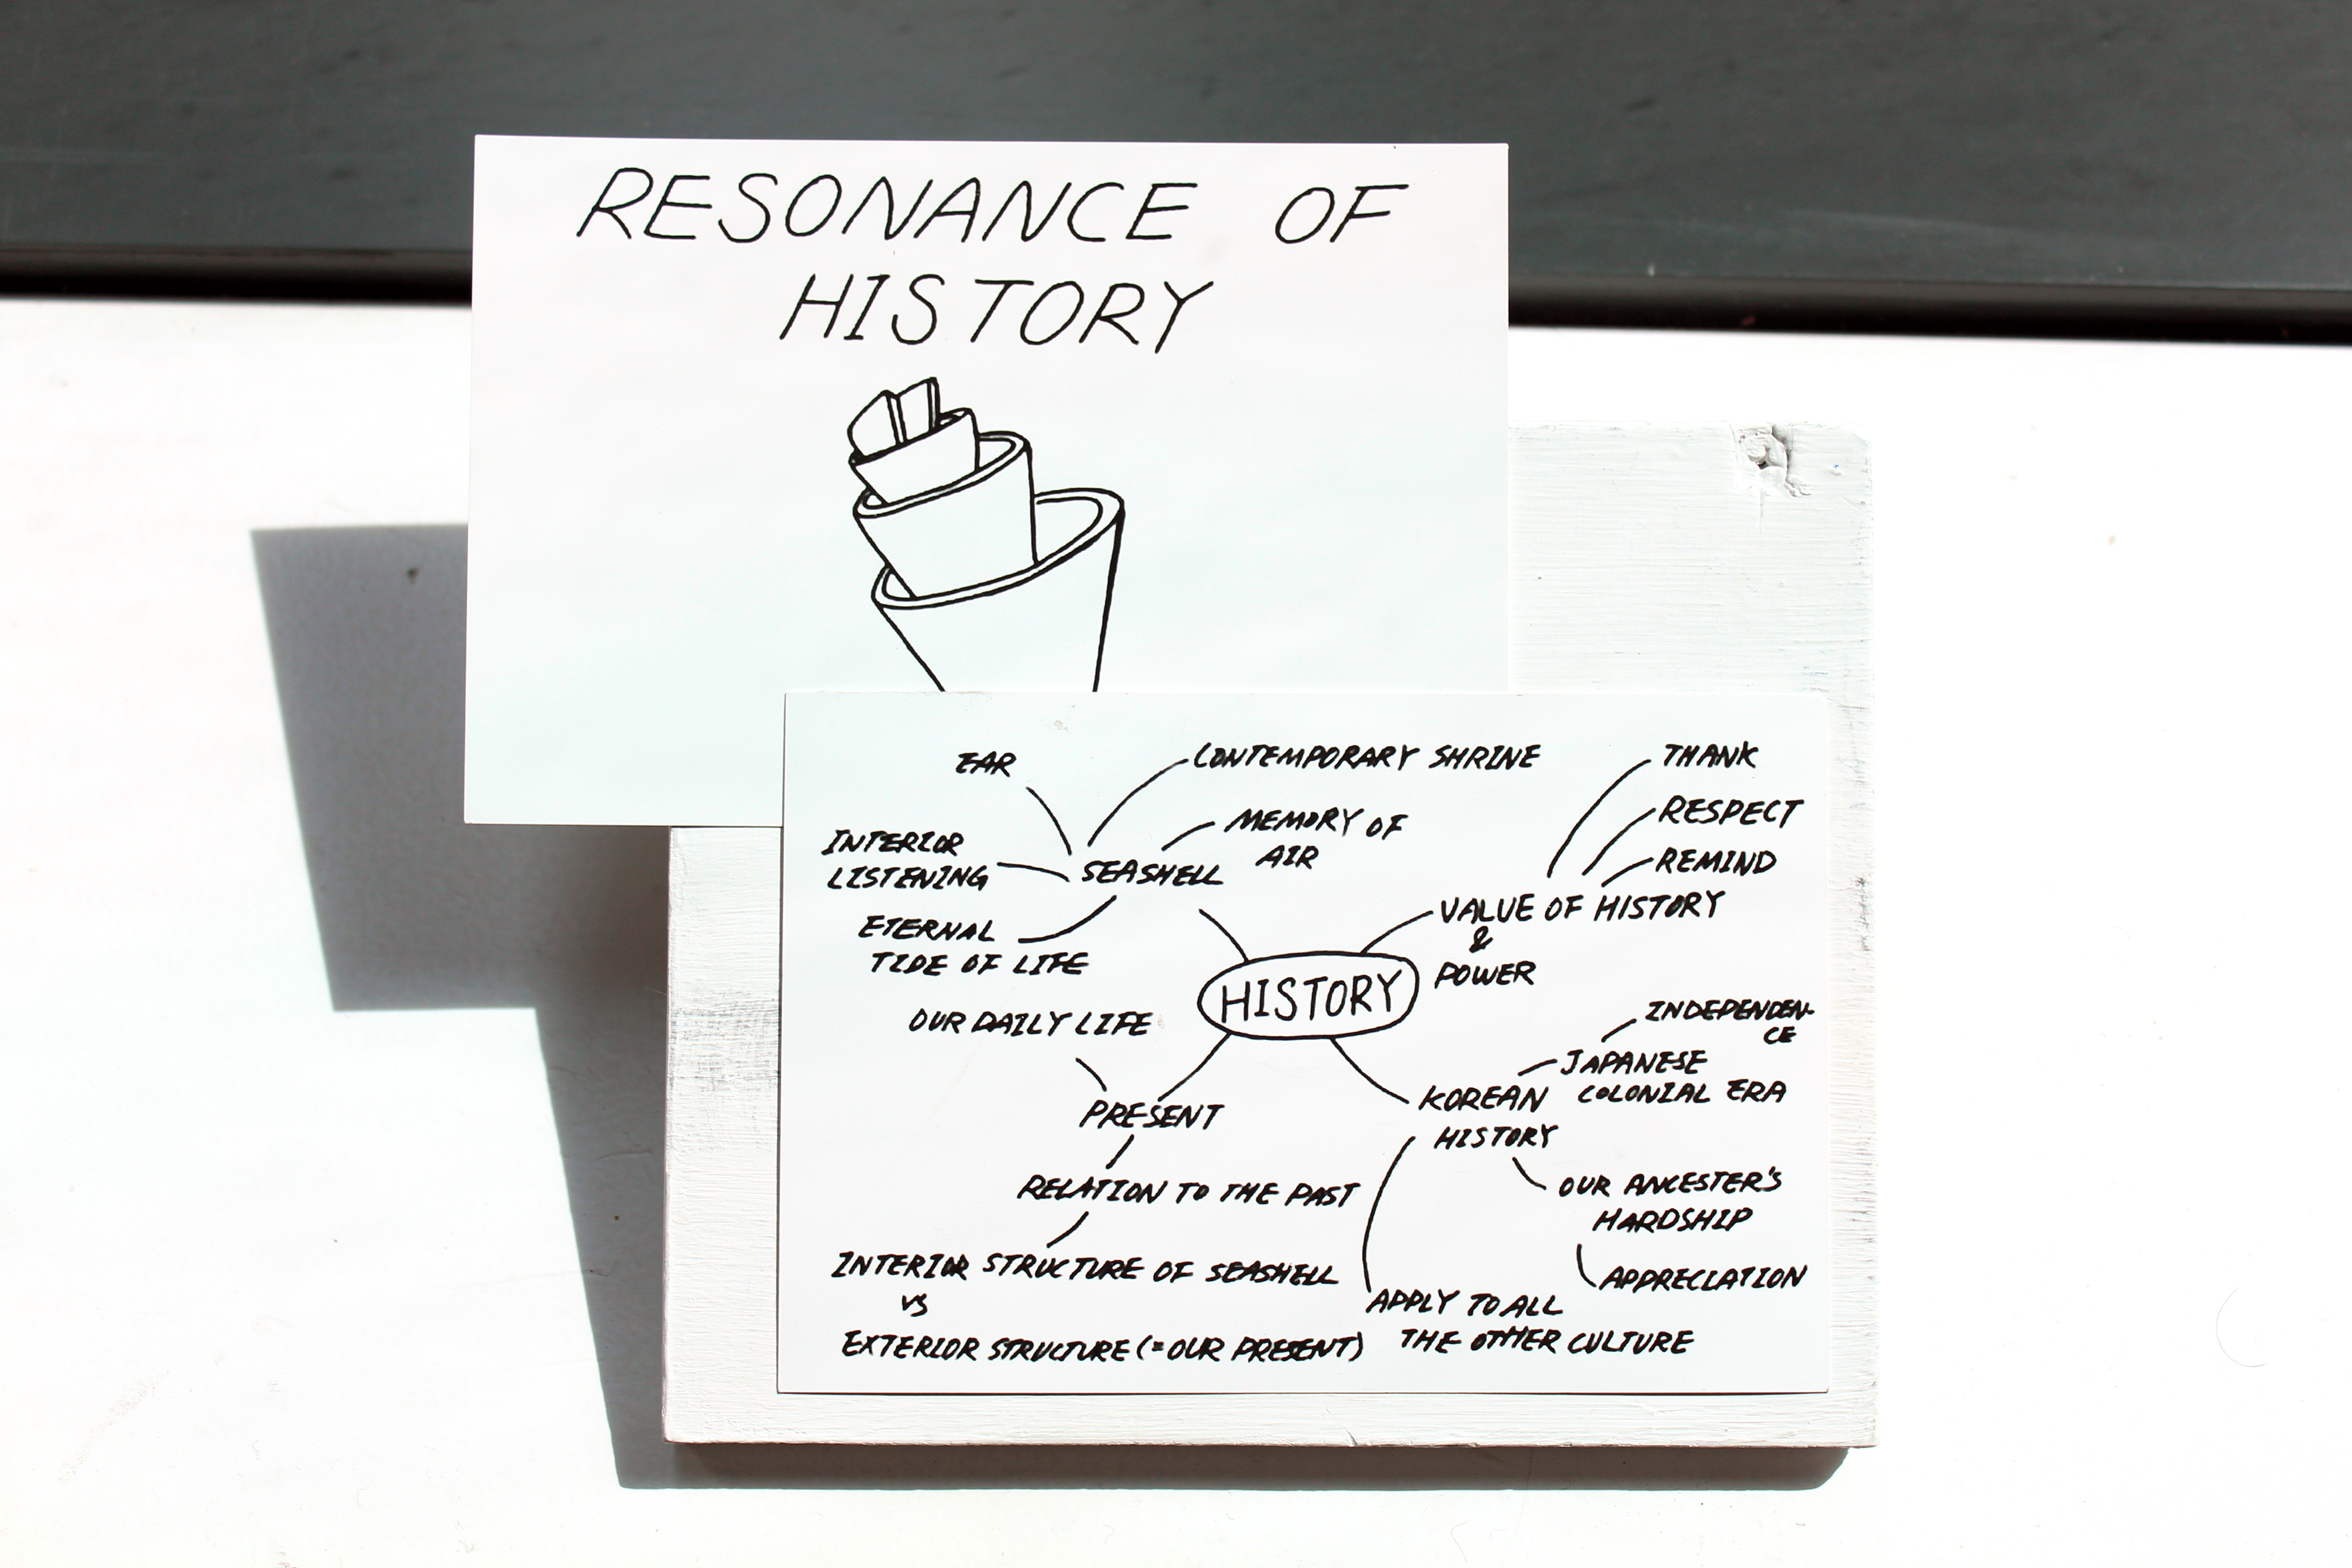 RESONANCE OF
HISTORY
EAR
CONTEMPORARY SHRINE
MEMORY OF
AIR
INTERIOR
LISTENING
SEASHELL
ETERNAL
TIDE OF LIFE
THANK
RESPECT
REMIND
VALUE OF HISTORY
&
POWER
HISTORY
OUR DAILY LIFE
PRESENT
RELATION TO THE PAST
INTERIOR STRUCTURE OF SEASHELL
VS
EXTERIOR STRUCTURE (=OUR PRESENT)
INDEPENDEN-
CE
JAPANESE
COLONIAL ERA
KOREAN
HISTORY
OUR ANCESTER'S
HARDSHIP
APPRECIATION
APPLY TO ALL
THE OTHER CULTURE